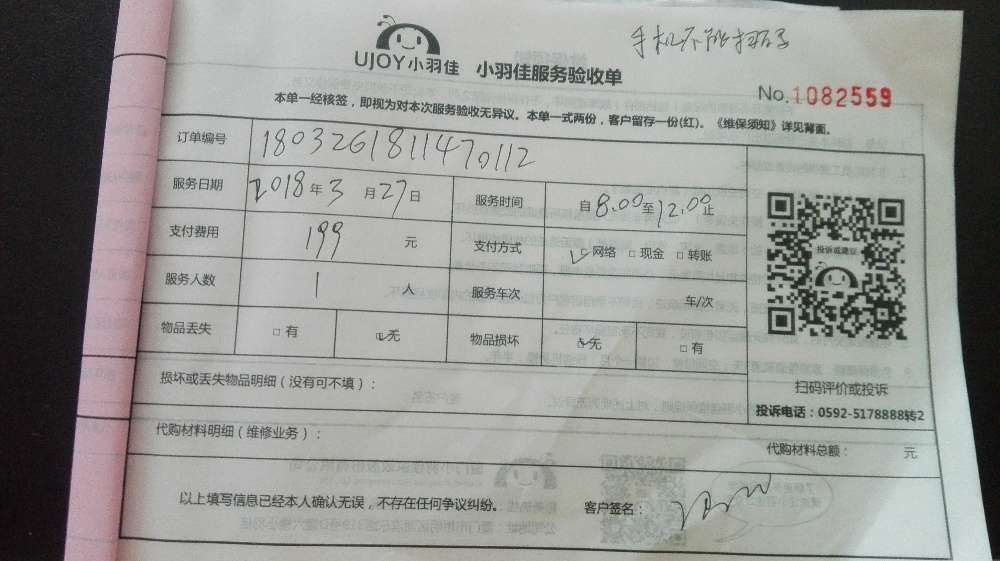 手机不能扫码
UJOY小羽佳 小羽佳服务验收单
No.1082559
本单一经核签，即视为对本次服务验收无异议。本单一式两份，客户留存一份(红)。《维保须知》详见背面。
订单编号 1803261811470112
服务日期 2018年3月27日 服务时间 自8.00至12.00止
支付费用 199 元 支付方式 ☑网络 □现金 □转账
投诉或建议
服务人数 1 人 服务车次 车/次
物品丢失 □有 ☑无 物品损坏 ☑无 □有
损坏或丢失物品明细（没有可不填）：
扫码评价或投诉
投诉电话：0592-5178888转2
代购材料明细（维修业务）：
代购材料总额： 元
以上填写信息已经本人确认无误，不存在任何争议纠纷。 客户签名：